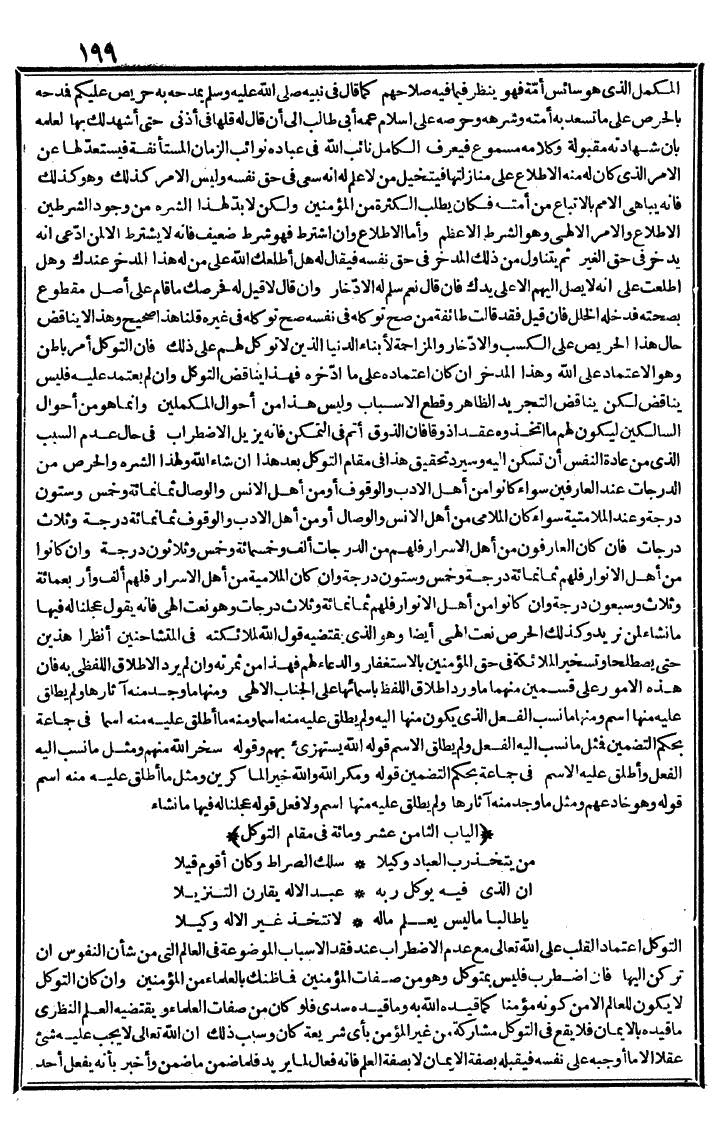 ١٩٩
المكمل الذى هو سائس أمّة فهو ينظر فيما فيه صلاحهم كما قال فى نبيه صلى الله عليه وسلم يمدحه به حريص عليكم فدحه
بالحرص على ما تسعد به أمته وشرهه وحرصه على اسلام عمه أبى طالب الى أن قال له قلها فى أذنى حتى أشهد لك بها لعلمه
بان شهادته مقبولة وكلامه مسموع فيعرف الكامل نائب الله فى عباده نوائب الزمان المستأنفة فيستعدّ لها عن
الامر الذى كان له منه الاطلاع على منازلتها فيتخيل من لا علم له انه سعى فى حق نفسه وليس الامر كذلك وهو كذلك
فانه يباهى الامم بالاتباع من أمته فكان يطلب الكثرة من المؤمنين ولكن لا بدّ لهذا الشره من وجود الشرطين
الاطلاع والامر الالهى وهو الشرط الاعظم وأما الاطلاع وان اشترط فهو شرط ضعيف فانه لا يشترط الا لمن ادّعى انه
يدخر فى حق الغير ثم يتناول من ذلك المدخر فى حق نفسه فيقال له هل أطلعك الله على من له هذا المدخر عندك وهل
اطلعت على انه لا يصل اليهم الا على يدك فان قال نعم سلم له الادّخار وان قال لا قيل له فحرصك ما قام على أصل مقطوع
بصحته فدخله الخلل فان قيل فقد قالت طائفة من صح توكله فى نفسه صح توكله فى غيره قلنا هذا صحيح وهذا لا يناقض
حال هذا الحريص على الكسب والادّخار والمزاحمة لأبناء الدنيا الذين لا توكل لهم على ذلك فان التوكل أمر باطن
وهو الاعتماد على الله وهذا المدخر ان كان اعتماده على ما ادّخره فهذا يناقض التوكل وان لم يعتمد عليه فليس
يناقض لكن يناقض التجريد الظاهر وقطع الاسباب وليس هذا من أحوال المكملين وانما هو من أحوال
السالكين ليكون لهم ما اتخذوه عقدا ذوقا فان الذوق أتم فى التمكن فانه يزيل الاضطراب فى حال عدم السبب
الذى من عادة النفس أن تسكن اليه وسيرد تحقيق هذا فى مقام التوكل بعد هذا ان شاء الله ولهذا الشره والحرص من
الدرجات عند العارفين سواء كانوا من أهل الادب والوقوف أو من أهل الانس والوصال ثمانمائة وخمس وستون
درجة وعند الملامتية سواء كان الملامى من أهل الانس والوصال أو من أهل الادب والوقوف ثمانمائة درجة وثلاث
درجات فان كان العارفون من أهل الاسرار فلهم من الدرجات ألف وخمسمائة وخمس وثلاثون درجة وان كانوا
من أهل الانوار فلهم ثمانمائة درجة وخمس وستون درجة وان كان الملامية من أهل الاسرار فلهم ألف وأربعمائة
وثلاث وسبعون درجة وان كانوا من أهل الانوار فلهم ثمانمائة وثلاث درجات وهو نعت الهى فانه يقول عجلنا له فيها
ما نشاء لمن نريد وكذلك الحرص نعت الهى أيضا وهو الذى يقتضيه قول الله لملائكته فى المتشاحنين أنظرا هذين
حتى يصطلحا وتسخير الملائكة فى حق المؤمنين بالاستغفار والدعاء لهم فهذا من ثمرته وان لم يرد الاطلاق اللفظى به فان
هذه الامور على قسمين منهما ما ورد اطلاق اللفظ باسمائها على الجناب الالهى ومنها ما وجد منه آثارها ولم يطلق
عليه منها اسم ومنها ما نسب الفعل الذى يكون منها اليه ولم يطلق عليه منه اسما ومنه ما أطلق عليه منه اسما فى جماعة
بحكم التضمين فمثل ما نسب اليه الفعل ولم يطلق الاسم قوله الله يستهزئ بهم وقوله سخر الله منهم ومثل ما نسب اليه
الفعل وأطلق عليه الاسم فى جماعة بحكم التضمين قوله ومكر الله والله خير الماكرين ومثل ما أطلق عليه منه اسم
قوله وهو خادعهم ومثل ما وجد منه آثارها ولم يطلق عليه منها اسم ولا فعل قوله عجلنا له فيها ما نشاء
﴿الباب الثامن عشر ومائة فى مقام التوكل﴾
من يتخذ رب العباد وكيلا * سلك الصراط وكان أقوم قيلا
ان الذى فيه يوكل ربه * عبد الاله يقارن التنزيلا
يا طالبا ما ليس يعلم ماله * لا تتخذ غير الاله وكيلا
التوكل اعتماد القلب على الله تعالى مع عدم الاضطراب عند فقد الاسباب الموضوعة فى العالم التى من شأن النفوس ان
تركن اليها فان اضطرب فليس بمتوكل وهو من صفات المؤمنين فما ظنك بالعلماء من المؤمنين وان كان التوكل
لا يكون للعالم الا من كونه مؤمنا كما قيده الله به وما قيده سدى فلو كان من صفات العلماء ويقتضيه العلم النظرى
ما قيده بالايمان فلا يقع فى التوكل مشاركة من غير المؤمن بأى شريعة كان وسبب ذلك ان الله تعالى لا يجب عليه شئ
عقلا الا ما أوجبه على نفسه فيقبله بصفة الايمان لا بصفة العلم فانه فعال لما يريد فلما ضمن ما ضمن وأخبر بأنه يفعل أحد